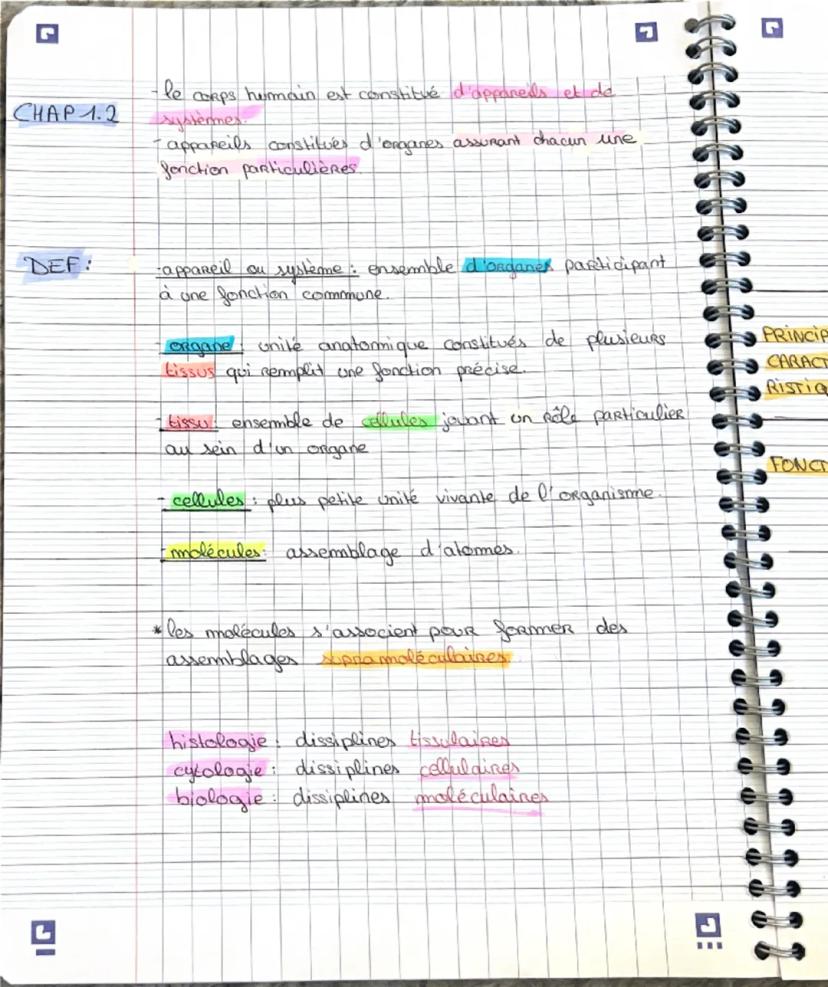 - le corps humain est constitué d'appareils et de
CHAP 1.2
systèmes.
- appareils constitués d'organes assurant chacun une
fonction particulières.
DEF :
- appareil ou système : ensemble d'organes participant
à une fonction commune.
- organe : unité anatomique constitués de plusieurs
tissus qui remplit une fonction précise.
- tissu : ensemble de cellules jouant un rôle particulier
au sein d'un organe
- cellules : plus petite unité vivante de l'organisme.
- molécules : assemblage d'atomes.
* les molécules s'associent pour former des
assemblages supramoléculaires.
histologie : dissiplines tissulaires
cytologie : dissiplines cellulaires
biologie : dissiplines moléculaires
PRINCIP
CARACT
RISTIQ
FONCT